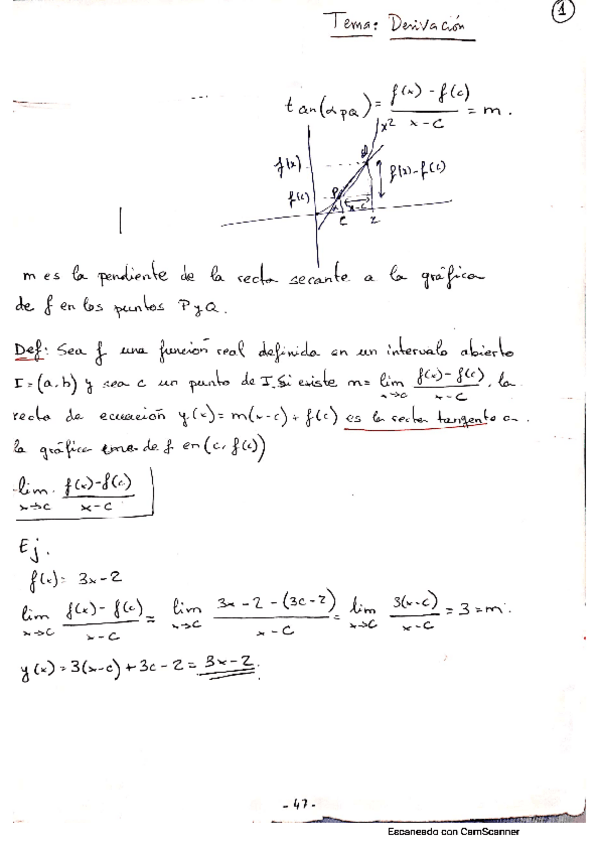 1
Tema: Derivación
tan(α PQ) = f(x) - f(c) / x - c = m.
x²
f(x)
f(c)
f(x) - f(c)
P
Q
x-c
c
m es la pendiente de la recta secante a la gráfica
de f en los puntos P y Q.
Def: Sea f una función real definida en un intervalo abierto
I = (a, b) y sea c un punto de I. Si existe m = lim x→c f(x) - f(c) / x - c, la
recta de ecuación y(x) = m(x-c) + f(c) es la recta tangente a
la gráfica de f en (c, f(c))
lim x→c f(x) - f(c) / x - c
Ej.
f(x) = 3x - 2
lim x→c f(x) - f(c) / x - c = lim x→c 3x - 2 - (3c - 2) / x - c = lim x→c 3(x-c) / x - c = 3 = m.
y(x) = 3(x-c) + 3c - 2 = 3x - 2.
- 47 -
Escaneado con CamScanner